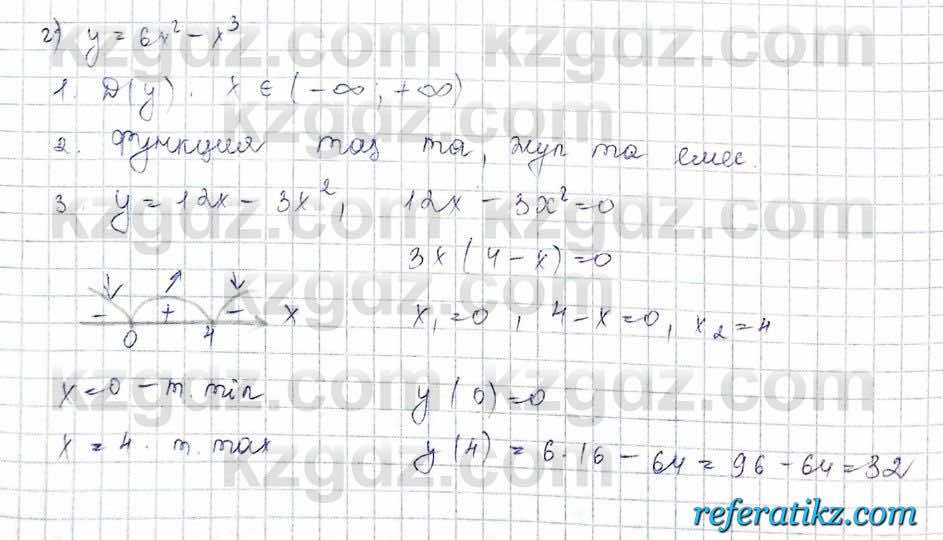 2) y = 6x² - x³
1. D(y). x ∈ (-∞; +∞)
2. Функция тақ та, жуп та емес.
3. y = 12x - 3x², 12x - 3x² = 0
3x(4 - x) = 0
- + - x
0 4
x₁ = 0, 4 - x = 0, x₂ = 4
x = 0 - т. min y(0) = 0
x = 4. т. max y(4) = 6·16 - 64 = 96 - 64 = 32
kzgdz.com
referatikz.com